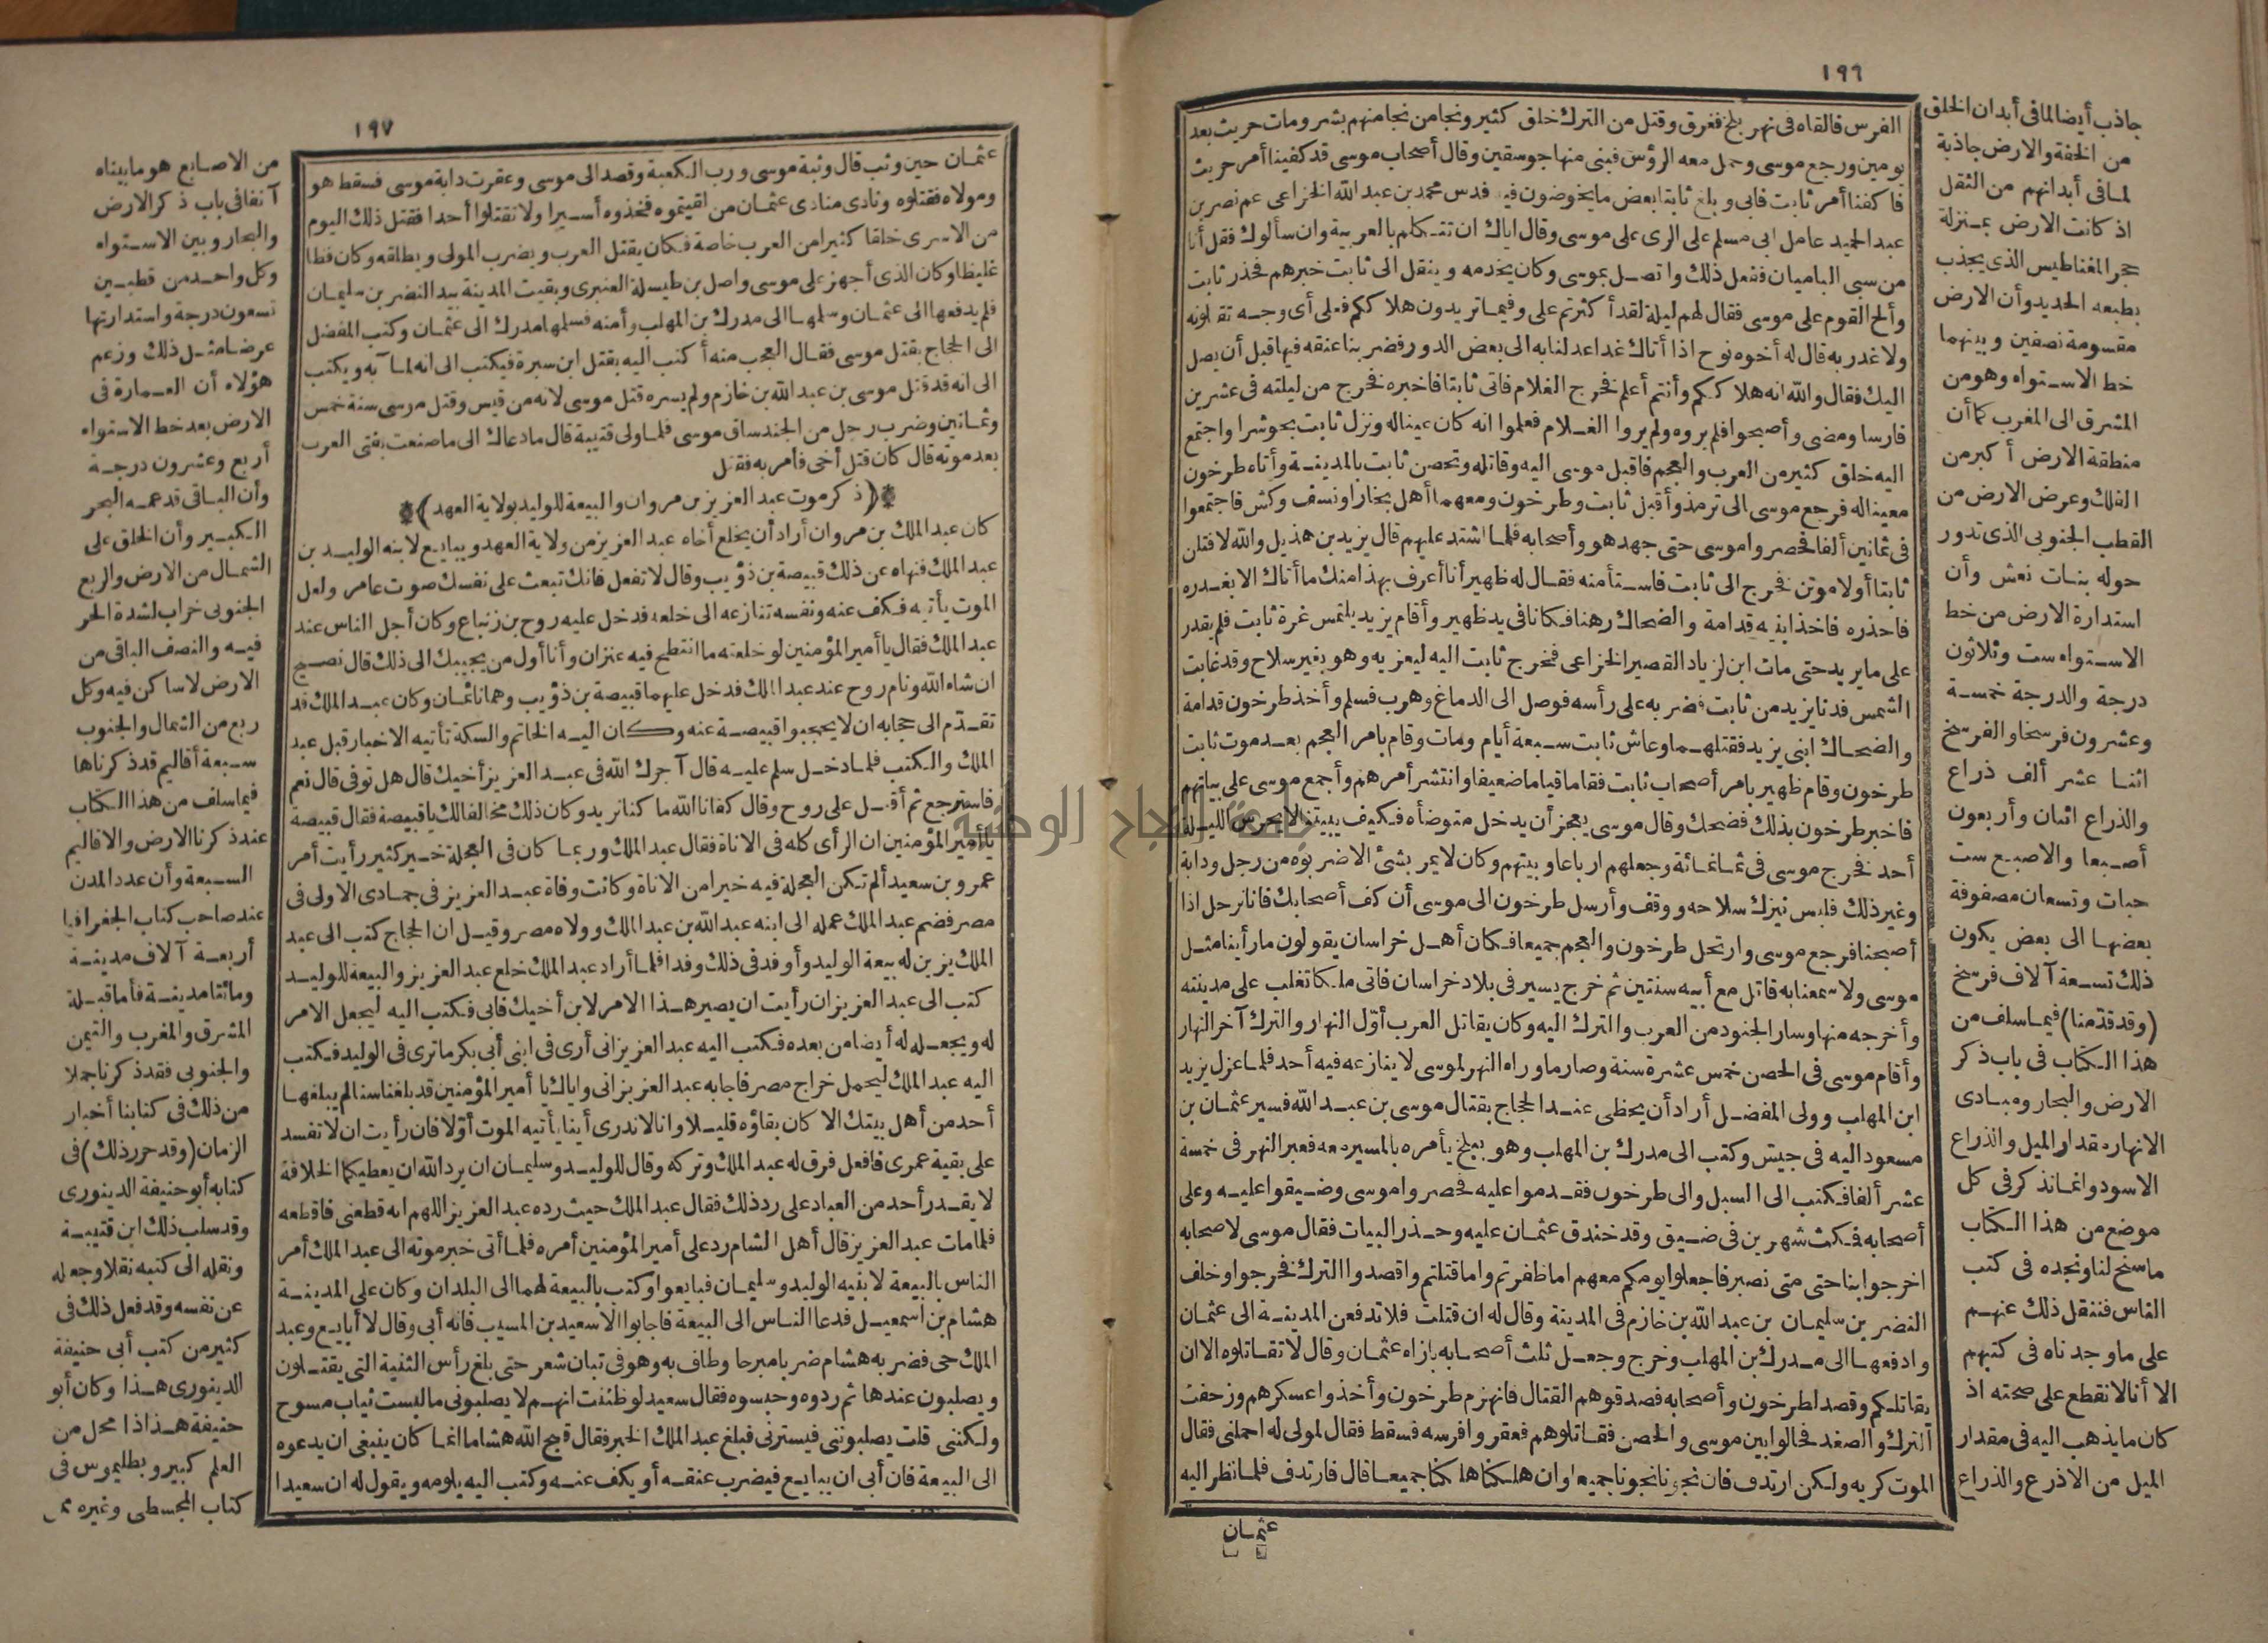 ١٩٦
الفرس فألقاه فى نهر بلخ فغرق وقتل من الترك خلق كثير ونجا من نجا منهم بشر ومات حريث بعد
يومين ورجع موسى وحمل معه الرؤس فبنى منها جوسقين وقال أصحاب موسى قد كفينا أمر حريث
فاكفنا أمر ثابت فابى وبلغ ثابتا بعض ما يخوضون فيه فدس محمد بن عبد الله الخزاعى عم نصر بن
عبد الحميد عامل ابى مسلم على الرى على موسى وقال اياك ان تتكلم بالعربية وان سألوك فقل أنا
من سبى الباميان ففعل ذلك واتصل بموسى وكان يخدمه وينقل الى ثابت خبرهم فحذر ثابت
وألح القوم على موسى فقال لهم ليلة لقد أكثرتم على وفيما تريدون هلاككم فعلى أى وجه تقتلونه
ولا غدر به قال له أخوه نوح اذا أتاك غدا عدلنا به الى بعض الدور فضربنا عنقه فيها قبل أن يصل
اليك فقال والله انه هلاككم وأنتم أعلم فخرج الغلام فاتى ثابتا فاخبره فخرج من ليلته فى عشرين
فارسا ومضى وأصبحوا فلم يروه ولم يروا الغلام فعلموا انه كان عيناله ونزل ثابت بحوشرا واجتمع
اليه خلق كثير من العرب والعجم فاقبل موسى اليه وقاتله وتحصن ثابت بالمدينة وأتاه طرخون
معيناله فرجع موسى الى ترمذ وأقبل ثابت وطرخون ومعهما أهل بخارا ونسف وكش فاجتمعوا
فى ثمانين ألفا فحصروا موسى حتى جهد هو وأصحابه فلما اشتد عليهم قال يزيد بن هذيل والله لاقتلن
ثابتا أو لاموتن فخرج الى ثابت فاستأمنه فقال له ظهير أنا أعرف بهذا منك ما أتاك الا بغدره
فاحذره فاخذ ابنيه قدامة والضحاك رهنا فكانا فى يد ظهير وأقام يزيد يلتمس غرة ثابت فلم يقدر
على ما يريد حتى مات ابن لزياد القصير الخزاعى فخرج ثابت اليه ليعزيه وهو بغير سلاح وقد غابت
الشمس فدنا يزيد من ثابت فضربه على رأسه فوصل الى الدماغ وهرب فسلم وأخذ طرخون قدامة
والضحاك ابنى يزيد فقتلهما وعاش ثابت سبعة أيام ومات وقام بامر العجم بعد موت ثابت
طرخون وقام ظهير بامر أصحاب ثابت فقاما قياما ضعيفا وانتشر أمرهم وأجمع موسى على بياتهم
فاخبر طرخون بذلك فضحك وقال موسى يعجز أن يدخل متوضأه فكيف يبيتنا لا يحرس الليلة
أحد فخرج موسى فى ثمانمائة وجعلهم ارباعا وبيتهم وكان لا يمر بشئ الا ضربوه من رجل ودابة
وغير ذلك فلبس نيزك سلاحه ووقف وأرسل طرخون الى موسى أن كف أصحابك فانا نرحل اذا
أصبحنا فرجع موسى وارتحل طرخون والعجم جميعا فكان أهل خراسان يقولون ما رأينا مثل
موسى ولا سمعنا به قاتل مع أبيه سنتين ثم خرج يسير فى بلاد خراسان فاتى ملكا تغلب على مدينته
وأخرجه منها وسار الجنود من العرب والترك اليه وكان يقاتل العرب أوّل النهار والترك آخر النهار
وأقام موسى فى الحصن خمس عشرة سنة وصار ما وراء النهر لموسى لا ينازعه فيه أحد فلما عزل يزيد
ابن المهلب وولى المفضل أراد أن يحظى عند الحجاج بقتال موسى بن عبد الله فسير عثمان بن
مسعود اليه فى جيش وكتب الى مدرك بن المهلب وهو ببلخ يأمره بالمسير معه فعبر النهر فى خمسة
عشر ألفا فكتب الى السبل والى طرخون فقدموا عليه فحصروا موسى وضيقوا عليه وعلى
أصحابه فمكث شهرين فى ضيق وقد خندق عثمان عليه وحذر البيات فقال موسى لاصحابه
اخرجوا بنا حتى متى نصبر فاجعلوا يومكم معهم اما ظفرتم واما قتلتم واقصدوا الترك فخرجوا وخلف
النضر بن سليمان بن عبد الله بن خازم فى المدينة وقال له ان قتلت فلا تدفعن المدينة الى عثمان
وادفعها الى مدرك بن المهلب وخرج وجعل ثلث أصحابه بازاء عثمان وقال لا تقاتلوه الا ان
يقاتلكم وقصد لطرخون وأصحابه فصدقوهم القتال فانهزم طرخون وأخذوا عسكرهم وزحفت
الترك والصغد فحالوا بين موسى والحصن فقاتلوهم فعقروا فرسه فسقط فقال لمولى له احملنى فقال
الموت كريه ولكن ارتدف فان نجونا نجونا جميعا وان هلكنا هلكنا جميعا قال فارتدف فلما نظر اليه
عثمان
جاذب أيضا لما فى أبدان الخلق
من الخفة والارض جاذبة
لما فى أبدانهم من الثقل
اذ كانت الارض بمنزلة
حجر المغناطيس الذى يجذب
بطبعه الحديد وأن الارض
مقسومة نصفين وبينهما
خط الاستواء وهو من
المشرق الى المغرب كما أن
منطقة الارض أكبر من
الفلك وعرض الارض من
القطب الجنوبى الذى تدور
حوله بنات نعش وأن
استدارة الارض من خط
الاستواء ست وثلاثون
درجة والدرجة خمسة
وعشرون فرسخا والفرسخ
اثنا عشر ألف ذراع
والذراع اثنان وأربعون
أصبعا والاصبع ست
حبات وتسعان مصفوفة
بعضها الى بعض يكون
ذلك تسعة آلاف فرسخ
(وقد قدّمنا) فيما سلف من
هذا الكتاب فى باب ذكر
الارض والبحار ومبادى
الانهار مقدار الميل والذراع
الاسود وانما نذكر فى كل
موضع من هذا الكتاب
ما سنح لنا ونجده فى كتب
الناس فننقل ذلك عنهم
على ما وجدناه فى كتبهم
الا أنا لا نقطع على صحته اذ
كان ما يذهب اليه فى مقدار
الميل من الاذرع والذراع
١٩٧
عثمان حين وثب قال وثبة موسى ورب الكعبة وقصد الى موسى وعقرت دابة موسى فسقط هو
ومولاه فقتلوه ونادى منادى عثمان من لقيتموه فخذوه أسيرا ولا تقتلوا أحدا فقتل ذلك اليوم
من الاسرى خلقا كثيرا من العرب خاصة فكان يقتل العرب ويضرب المولى ويطلقه وكان فظا
غليظا وكان الذى أجهز على موسى واصل بن طيسلة العنبرى وبقيت المدينة بيد النضر بن سليمان
فلم يدفعها الى عثمان وسلمها الى مدرك بن المهلب وأمنه فسلمها مدرك الى عثمان وكتب المفضل
الى الحجاج بقتل موسى فقال العجب منه أكتب اليه بقتل ابن سبرة فيكتب الى انه لمآبه ويكتب
الى انه قد قتل موسى بن عبد الله بن خازم ولم يسره قتل موسى لانه من قيس وقتل موسى سنة خمس
وثمانين وضرب رجل من الجند ساق موسى فلما ولى قتيبة قال ما دعاك الى ما صنعت بفتى العرب
بعد موته قال كان قتل أخى فأمر به فقتل
(ذكر موت عبد العزيز بن مروان والبيعة للوليد بولاية العهد)
كان عبد الملك بن مروان أراد أن يخلع أخاه عبد العزيز من ولاية العهد ويبايع لابنه الوليد بن
عبد الملك فنهاه عن ذلك قبيصة بن ذؤيب وقال لا تفعل فانك تبعث على نفسك صوت عامر ولعل
الموت يأتيه فكف عنه ونفسه تنازعه الى خلعه فدخل عليه روح بن زنباع وكان أجل الناس عند
عبد الملك فقال يا أمير المؤمنين لو خلعته ما انتطح فيه عنزان وأنا أول من يجيبك الى ذلك قال نصبح
ان شاء الله ونام روح عند عبد الملك فدخل عليهما قبيصة بن ذؤيب وهما نائمان وكان عبد الملك قد
تقدّم الى حجابه ان لا يحجبوا قبيصة عنه وكان اليه الخاتم والسكة تأتيه الاخبار قبل عبد
الملك والكتب فلما دخل سلم عليه قال آجرك الله فى عبد العزيز أخيك قال هل توفى قال نعم
فاسترجع ثم أقبل على روح وقال كفانا الله ما كنا نريد وكان ذلك مخالفا لك يا قبيصة فقال قبيصة
يا أمير المؤمنين ان الرأى كله فى الاناة فقال عبد الملك وربما كان فى العجلة خير كثير رأيت أمر
عمرو بن سعيد ألم تكن العجلة فيه خيرا من الاناة وكانت وفاة عبد العزيز فى جمادى الاولى فى
مصر فضم عبد الملك عمله الى ابنه عبد الله بن عبد الملك وولاه مصر وقيل ان الحجاج كتب الى عبد
الملك يزين له بيعة الوليد وأوفد فى ذلك وفدا فلما أراد عبد الملك خلع عبد العزيز والبيعة للوليد
كتب الى عبد العزيز ان رأيت ان يصير هذا الامر لابن أخيك فابى فكتب اليه ليجعل الامر
له ويجعله له أيضا من بعده فكتب اليه عبد العزيز انى أرى فى ابنى أبى بكر ما ترى فى الوليد فكتب
اليه عبد الملك ليحمل خراج مصر فاجابه عبد العزيز انى واياك يا أمير المؤمنين قد بلغنا سنا لم يبلغها
أحد من أهل بيتك الا كان بقاؤه قليلا وانا لا ندرى أينا يأتيه الموت أوّلا فان رأيت ان لا تفسد
على بقية عمرى فافعل فرق له عبد الملك وتركه وقال للوليد وسليمان ان يرد الله ان يعطيكما الخلافة
لا يقدر أحد من العباد على رد ذلك فقال عبد الملك حيث رده عبد العزيز اللهم انه قطعنى فاقطعه
فلما مات عبد العزيز قال أهل الشام رد على أمير المؤمنين أمره فلما أتى خبر موته الى عبد الملك أمر
الناس بالبيعة لابنيه الوليد وسليمان فبايعوا وكتب بالبيعة لهما الى البلدان وكان على المدينة
هشام بن اسمعيل فدعا الناس الى البيعة فاجابوا الا سعيد بن المسيب فانه أبى وقال لا أبايع وعبد
الملك حى فضربه هشام ضربا مبرحا وطاف به وهو فى تبان شعر حتى بلغ رأس الثنية التى يقتلون
ويصلبون عندها ثم ردوه وحبسوه فقال سعيد لو ظننت انهم لا يصلبونى ما لبست ثياب مسوح
ولكننى قلت يصلبوننى فيسترنى فبلغ عبد الملك الخبر فقال قبح الله هشاما انما كان ينبغى ان يدعوه
الى البيعة فان أبى ان يبايع فيضرب عنقه أو يكف عنه وكتب اليه يلومه ويقول له ان سعيدا
من الاصابع هو ما بيناه
آنفا فى باب ذكر الارض
والبحار وبين الاستواء
وكل واحد من قطبين
تسعون درجة واستدارتها
عرضا مثل ذلك وزعم
هؤلاء أن العمارة فى
الارض بعد خط الاستواء
أربع وعشرون درجة
وأن الباقى قد عمه البحر
الكبير وأن الخلق على
الشمال من الارض والربع
الجنوبى خراب لشدة الحر
فيه والنصف الباقى من
الارض لا ساكن فيه وكل
ربع من الشمال والجنوب
سبعة أقاليم قد ذكرناها
فيما سلف من هذا الكتاب
عند ذكرنا الارض والاقاليم
السبعة وأن عدد المدن
عند صاحب كتاب الجغرافيا
أربعة آلاف مدينة
ومائتا مدينة فأما قبلة
المشرق والمغرب والتيمن
والجنوبى فقد ذكرنا جملا
من ذلك فى كتابنا أخبار
الزمان (وقد حرر ذلك) فى
كتابه أبو حنيفة الدينورى
وقد سلب ذلك ابن قتيبة
ونقله الى كتبه نقلا وجعله
عن نفسه وقد فعل ذلك فى
كثير من كتب أبى حنيفة
الدينورى هذا وكان أبو
حنيفة هذا ذا محل من
العلم كبير وبطليموس فى
كتاب المجسطى وغيره ممن
جامعة النجاح الوطنية